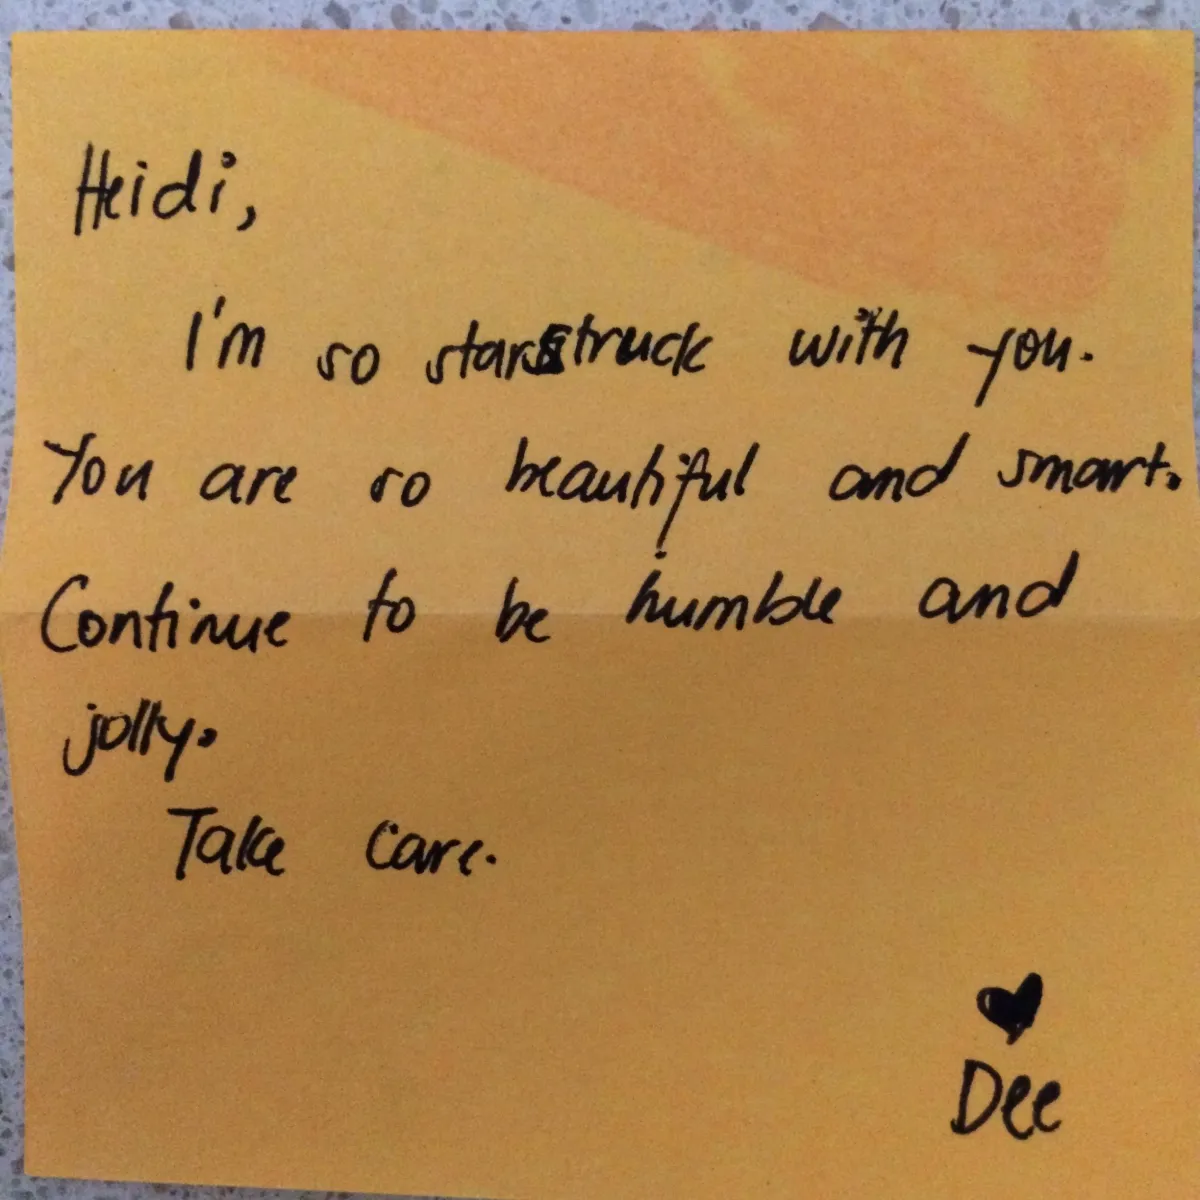 Heidi,
I'm so starstruck with you.
You are so beautiful and smart.
Continue to be humble and
jolly.
Take care.
Dee